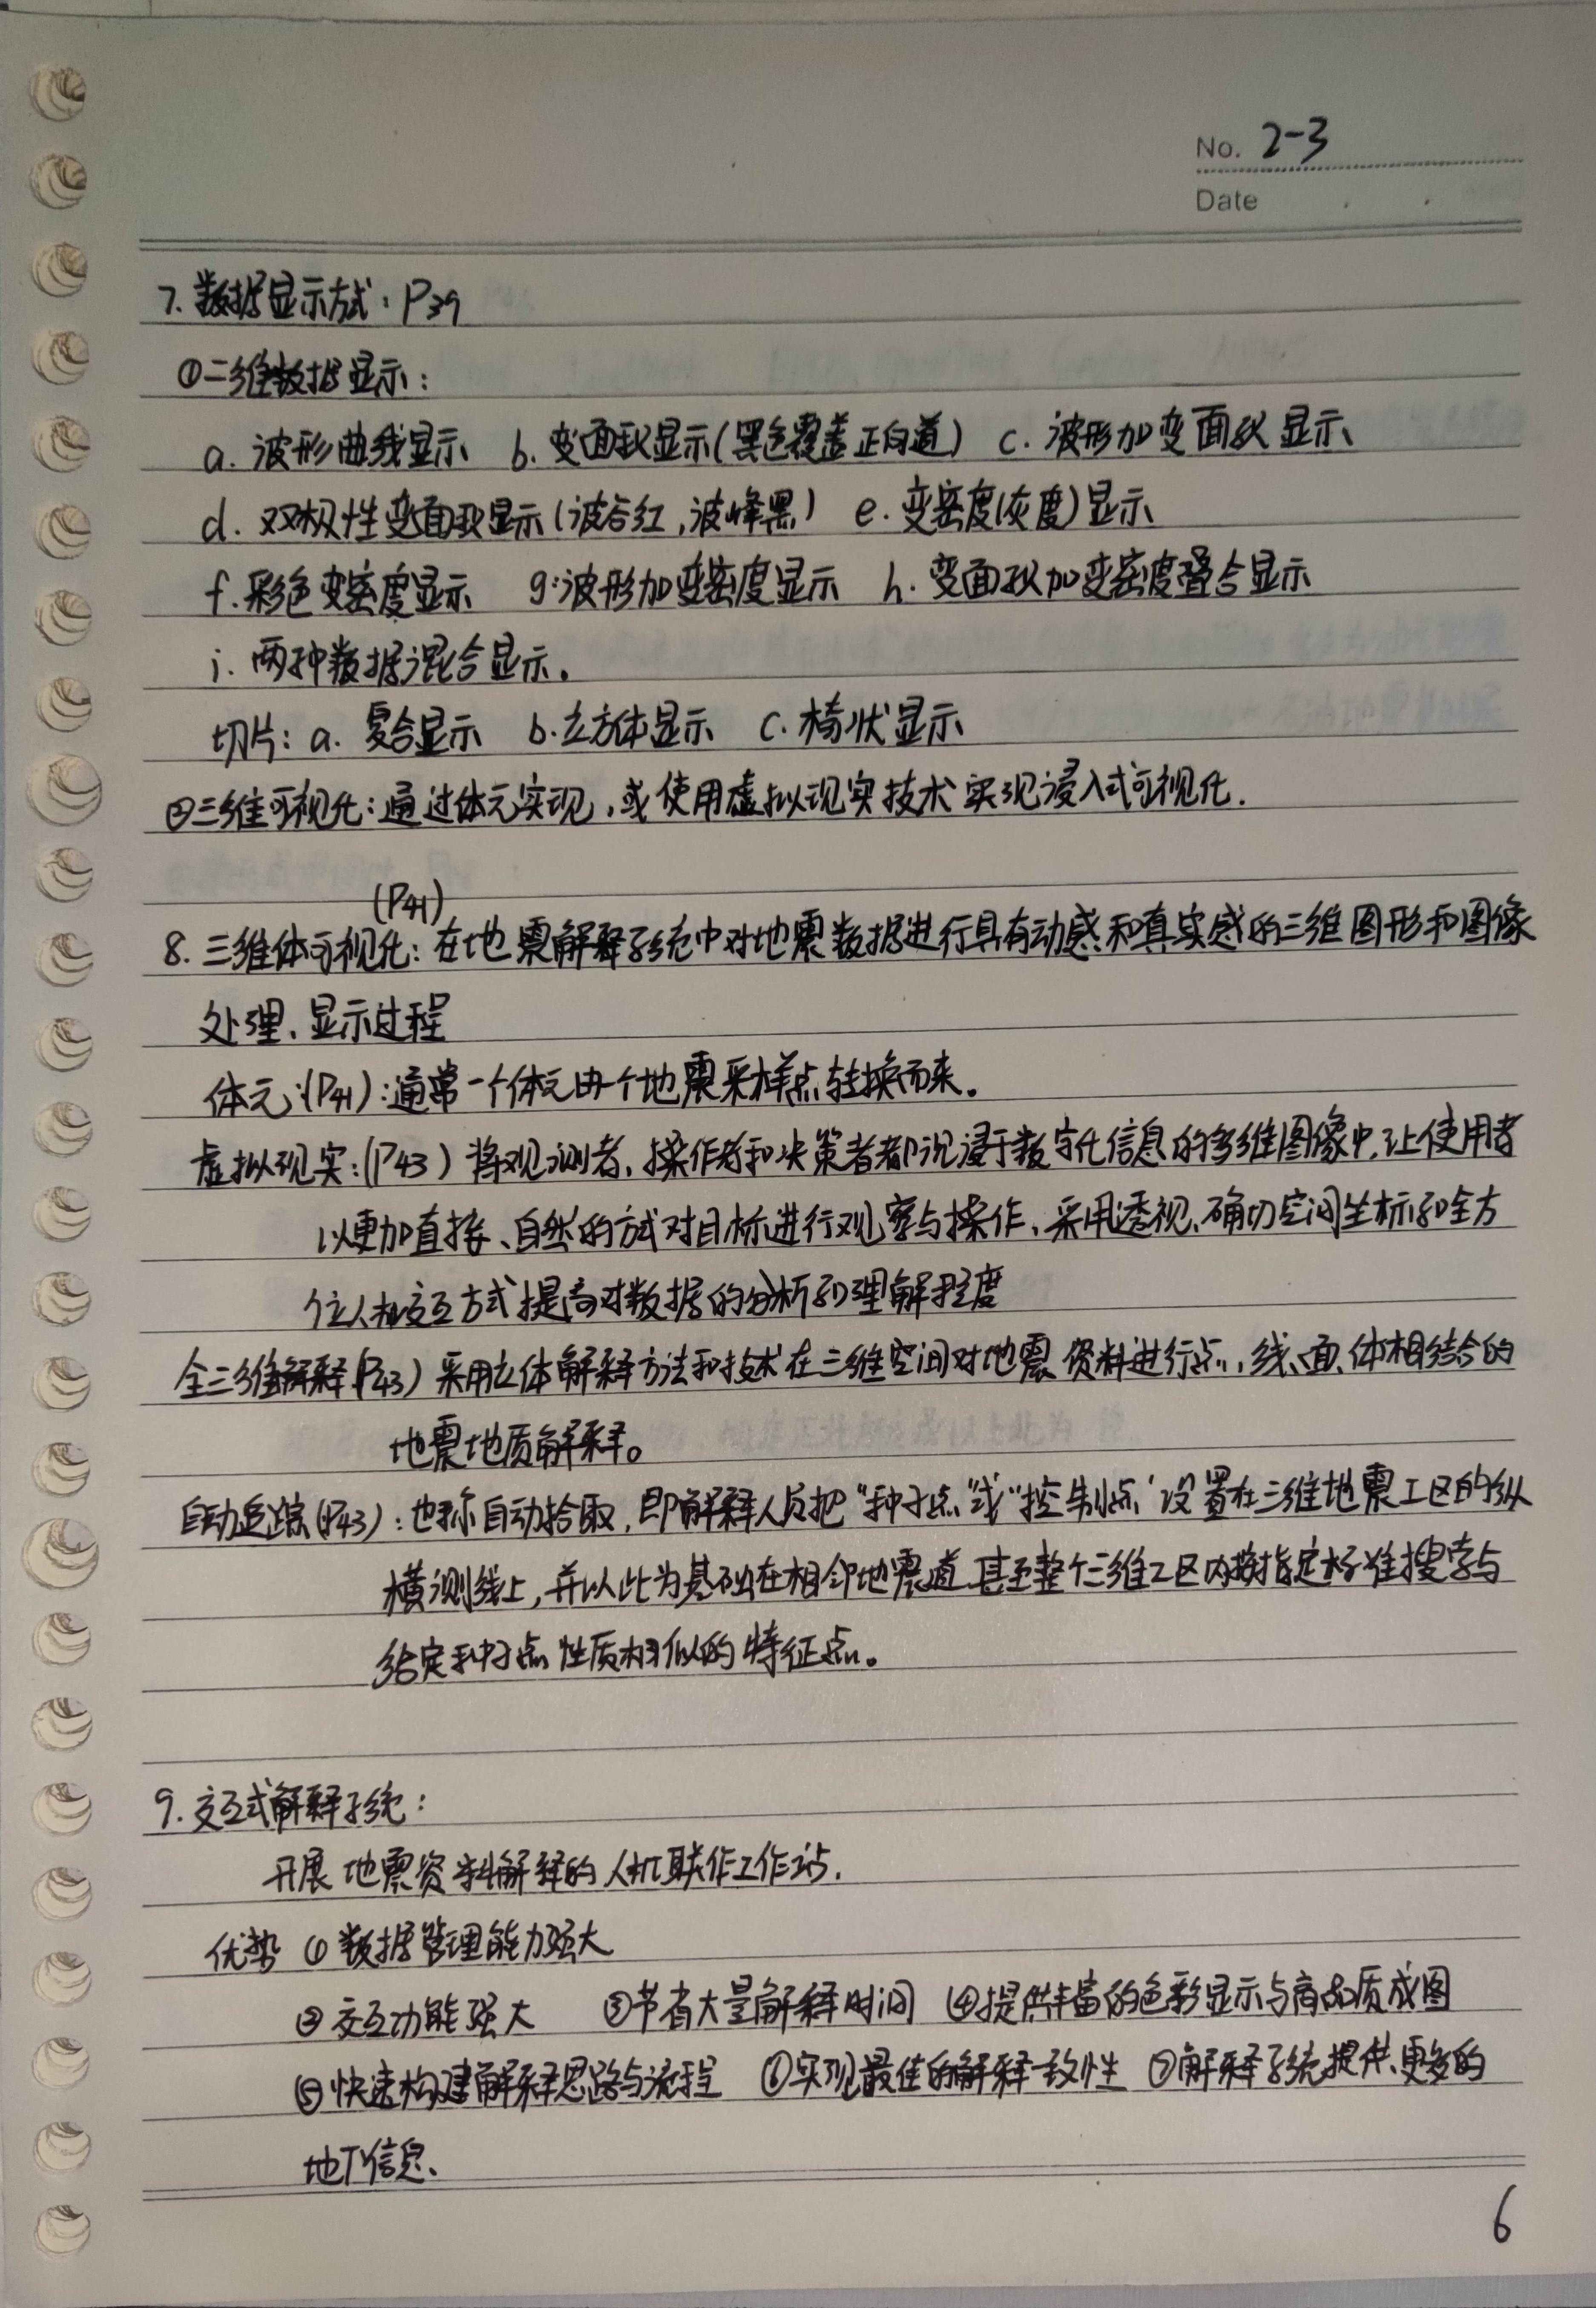 No. 2-3
Date
7. 数据显示方式：P39
①二维数据显示：
a. 波形曲线显示 b. 变面积显示(黑色覆盖正向道) c. 波形加变面积显示、
d. 双极性变面积显示(波谷红,波峰黑) e. 变密度(灰度)显示
f. 彩色变密度显示 g. 波形加变密度显示 h. 变面积加变密度叠合显示
i. 两种数据混合显示。
切片：a. 复合显示 b. 立方体显示 c. 椅状显示
②三维可视化：通过体元实现，或使用虚拟现实技术实现浸入式可视化.
(P41)
8. 三维体可视化：在地震解释系统中对地震数据进行具有动感和真实感的三维图形和图像
处理、显示过程
体元:(P41)：通常一个体元由一个地震采样点转换而来。
虚拟现实：(P43) 将观测者、操作者和决策者都沉浸于数字化信息的多维图像中,让使用者
以更加直接、自然的方式对目标进行观察与操作、采用透视、确切空间坐标和全方
位人机交互方式提高对数据的分析和理解程度
全三维解释(P43) 采用立体解释方法和技术在三维空间对地震资料进行点、线、面、体相结合的
地震地质解释。
自动追踪(P43)：也称自动拾取，即解释人员把“种子点”或“控制点”设置在三维地震工区的纵
横测线上，并以此为基础在相邻地震道甚至整个三维工区内按指定标准搜索与
给定种子点性质相似的特征点。
9. 交互式解释系统：
开展地震资料解释的人机联作工作站.
优势 ① 数据管理能力强大
② 交互功能强大 ③节省大量解释时间 ④提供丰富的色彩显示与高品质成图
⑤快速构建解释思路与流程 ⑥实现最佳的解释一致性 ⑦解释系统提供更多的
地下信息、
6